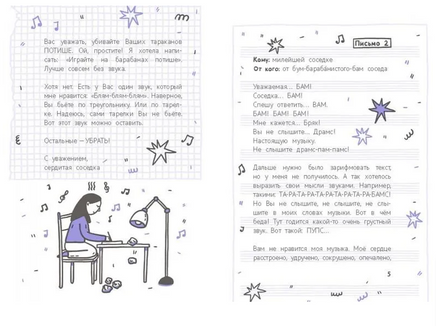 Вас уважать, убивайте Ваших тараканов
ПОТИШЕ. Ой, простите! Я хотела напи-
сать: «Играйте на барабанах потише».
Лучше совсем без звука.
Хотя нет. Есть у Вас один звук, который
мне нравится: «Блям-блям-блям». Наверное,
Вы бьёте по треугольнику. Или по тарел-
ке. Надеюсь, сами тарелки Вы не бьёте.
Вот этот звук можно оставить.
Остальные – УБРАТЬ!
С уважением,
сердитая соседка
Письмо 2
Кому: милейшей соседке
От кого: от бум-барабанистого-бам соседа
Уважаемая... БАМ!
Соседка... БАМ!
Спешу ответить... БАМ.
БАМ! БАМ! БАМ!
Мне кажется... Брям!
Вы не слышите... Драмс!
Настоящую музыку.
Не слышите драмс-пам-памс!
Дальше нужно было зарифмовать текст,
но у меня не получилось. А так хотелось
выразить свои мысли звуками. Например,
такими: ТА-РА-ТА-РА-ТА-РА-ТА-РА-БАМС!
Но Вы не слышите, не слышите, не слы-
шите в моих словах музыки. Вот в чём
беда! Тут годится какой-то очень грустный
звук. Вот такой: ПУПС...
Вам не нравится моя музыка. Моё сердце
расстроено, удручено, сокрушено, опечалено,
5